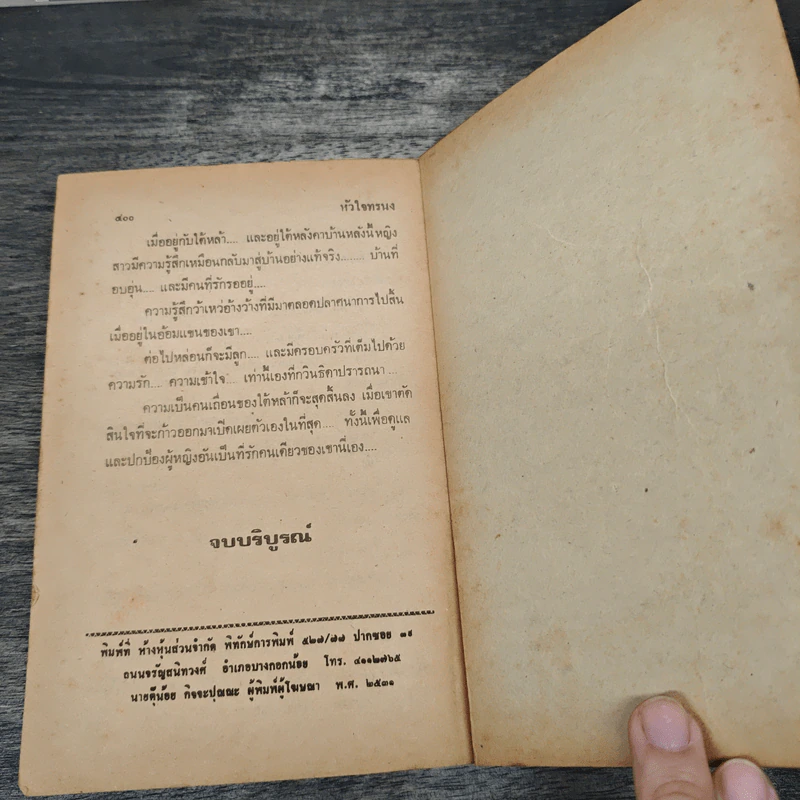 ๔๐๐ หัวใจทรนง
เมื่ออยู่กับใต้หล้า.... และอยู่ใต้หลังคาบ้านหลังนี้หญิง
สาวมีความรู้สึกเหมือนกลับมาสู่บ้านอย่างแท้จริง........ บ้านที่
อบอุ่น.... และมีคนที่รักรออยู่....
ความรู้สึกว้าเหว่อ้างว้างที่มีมาตลอดปลาศนาการไปสิ้น
เมื่ออยู่ในอ้อมแขนของเขา....
ต่อไปหล่อนก็จะมีลูก.... และมีครอบครัวที่เต็มไปด้วย
ความรัก.... ความเข้าใจ.... เท่านี้เองที่กวินธิดาปรารถนา ...
ความเป็นคนเถื่อนของใต้หล้าก็จะสุดสิ้นลง เมื่อเขาตัด
สินใจที่จะก้าวออกมาเปิดเผยตัวเองในที่สุด.... ทั้งนี้เพื่อดูแล
และปกป้องผู้หญิงอันเป็นที่รักคนเดียวของเขานี่เอง....
จบบริบูรณ์
พิมพ์ที่ ห้างหุ้นส่วนจำกัด พิทักษ์การพิมพ์ ๕๒๗/๗๗ ปากซอย ๓๙
ถนนจรัญสนิทวงศ์ อำเภอบางกอกน้อย โทร. ๔๑๑๒๗๖๕
นายตุ๊น้อย กิจจะปุณณะ ผู้พิมพ์ผู้โฆษณา พ.ศ. ๒๕๓๑